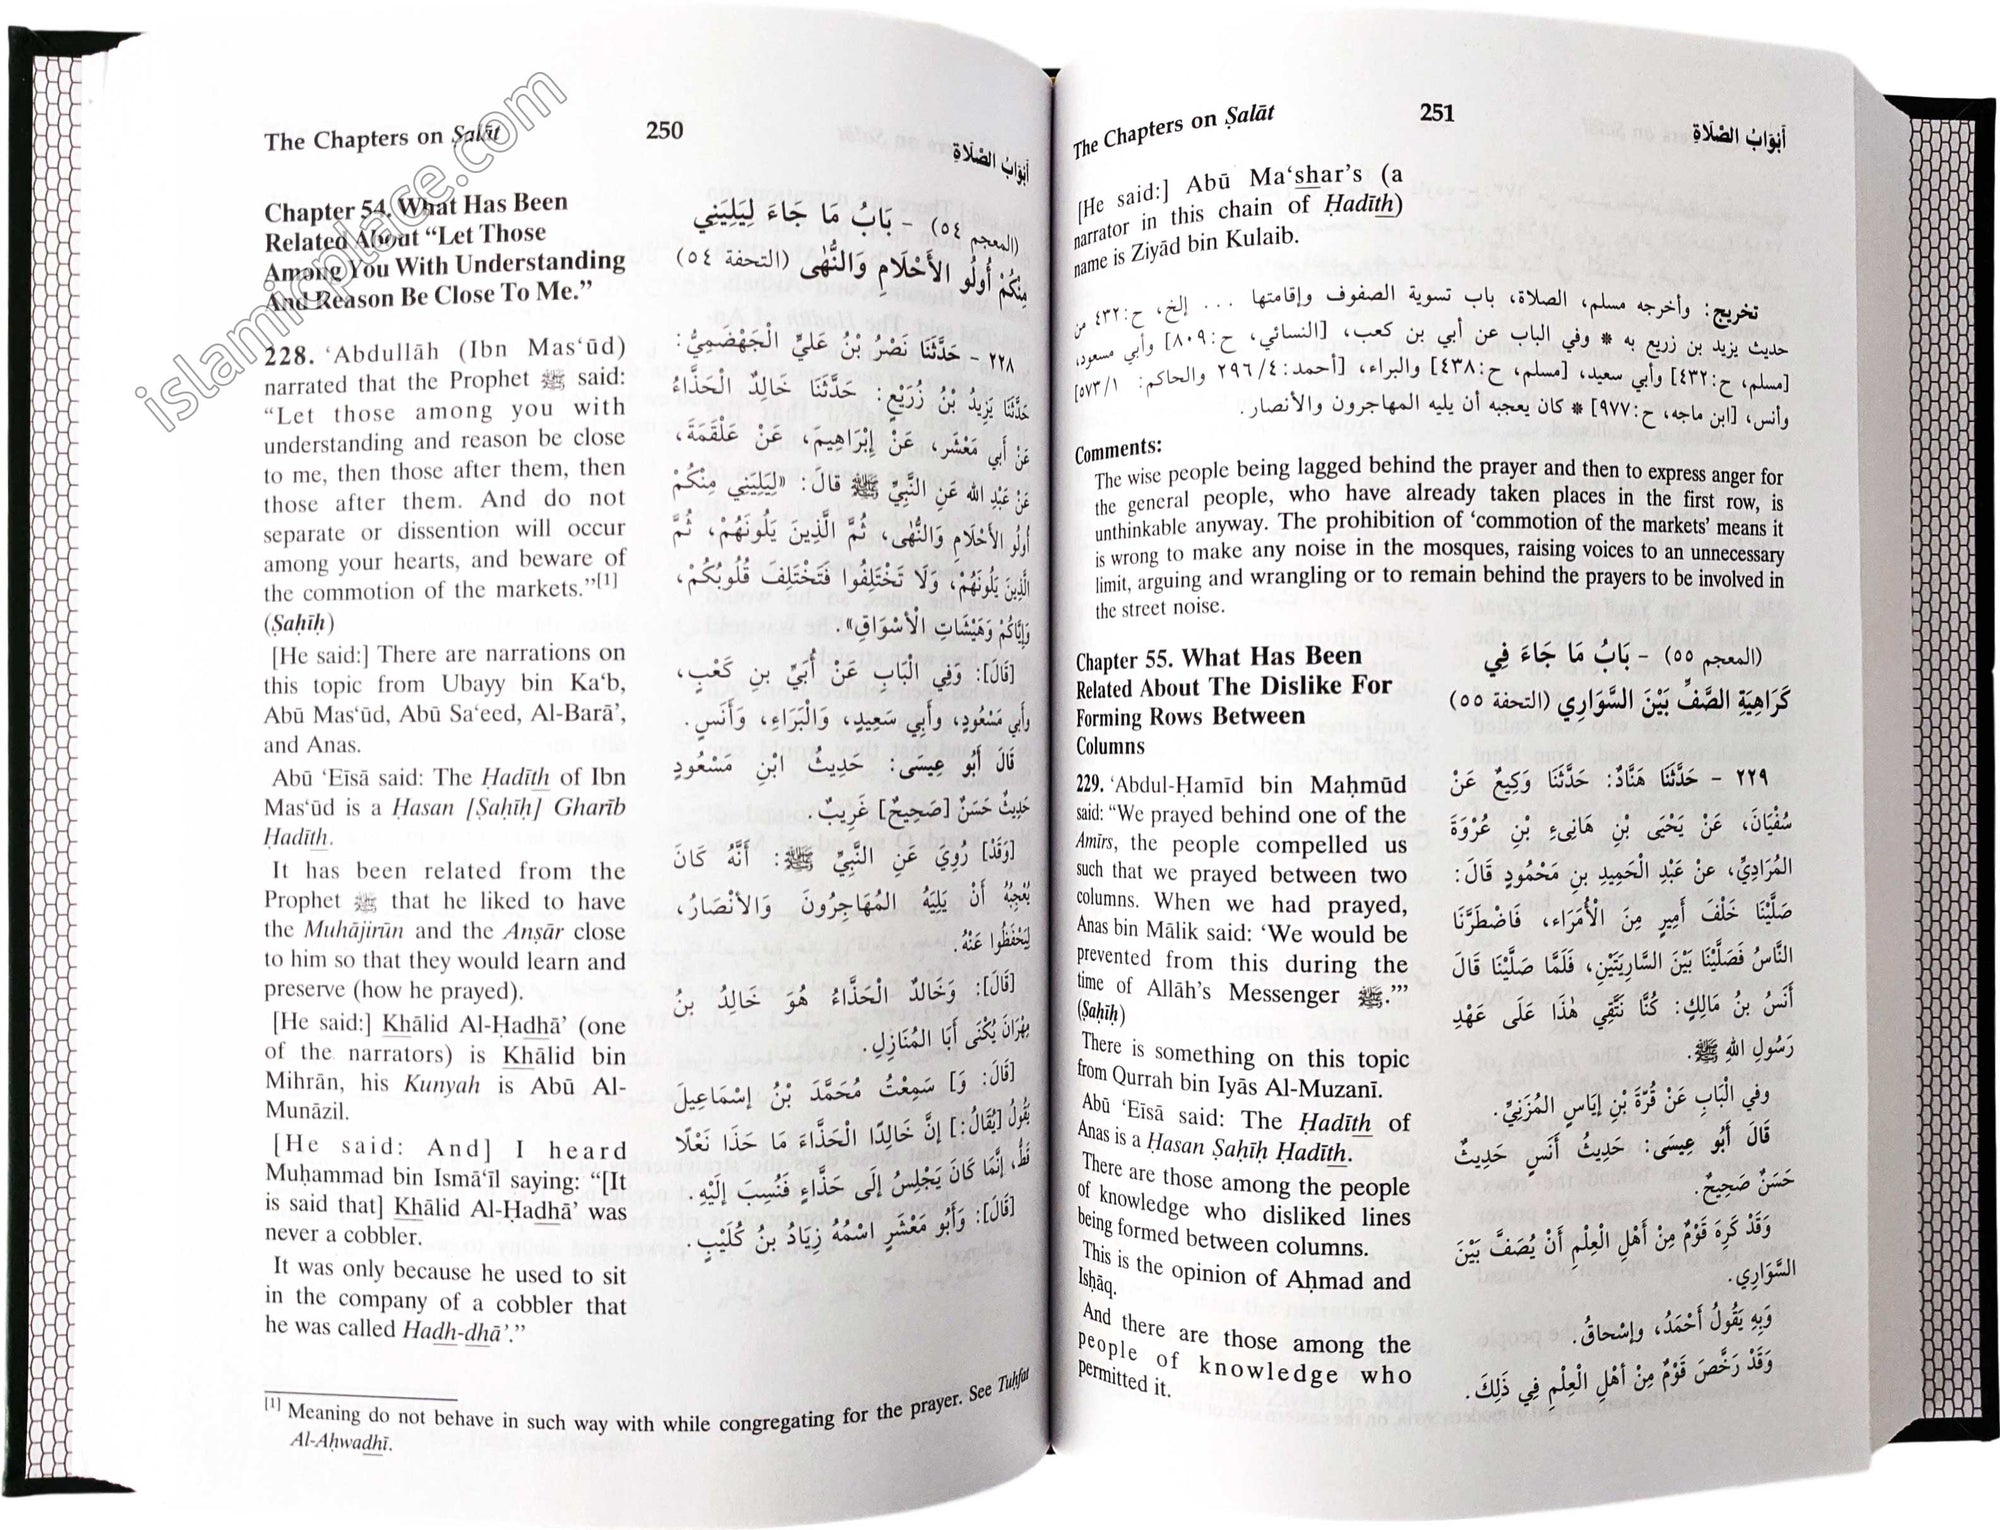 islamicplace.com
The Chapters on Ṣalāt
250
أبْوَابُ الصَّلَاةِ
Chapter 54. What Has Been
Related About “Let Those
Among You With Understanding
And Reason Be Close To Me.”
228. ‘Abdullāh (Ibn Mas‘ūd)
narrated that the Prophet ﷺ said:
“Let those among you with
understanding and reason be close
to me, then those after them, then
those after them. And do not
separate or dissention will occur
among your hearts, and beware of
the commotion of the markets.”[1]
(Ṣaḥīḥ)
[He said:] There are narrations on
this topic from Ubayy bin Ka‘b,
Abū Mas‘ūd, Abū Sa‘eed, Al-Barā’,
and Anas.
Abū ‘Eīsā said: The Ḥadīth of Ibn
Mas‘ūd is a Ḥasan [Ṣaḥīḥ] Gharīb
Ḥadīth.
It has been related from the
Prophet ﷺ that he liked to have
the Muhājirūn and the Anṣār close
to him so that they would learn and
preserve (how he prayed).
[He said:] Khālid Al-Ḥadhā’ (one
of the narrators) is Khālid bin
Mihrān, his Kunyah is Abū Al-
Munāzil.
[He said: And] I heard
Muḥammad bin Ismā‘īl saying: “[It
is said that] Khālid Al-Ḥadhā’ was
never a cobbler.
It was only because he used to sit
in the company of a cobbler that
he was called Hadh-dhā’.”
(المعجم ٥٤) - بَابُ مَا جَاءَ لِيَلِيَنِي
مِنْكُمْ أُولُو الأَحْلَامِ وَالنُّهٰى (التحفة ٥٤)
٢٢٨ - حَدَّثَنَا نَصْرُ بْنُ عَلِيٍّ الْجَهْضَمِيُّ:
حَدَّثَنَا يَزِيدُ بْنُ زُرَيْعٍ: حَدَّثَنَا خَالِدٌ الْحَذَّاءُ
عَنْ أَبِي مَعْشَرٍ، عَنْ إِبْرَاهِيمَ، عَنْ عَلْقَمَةَ،
عَنْ عَبْدِ الله عَنِ النَّبِيِّ ﷺ قالَ: «لِيَلِيَنِي مِنْكُمْ
أُولُو الأَحْلَامِ وَالنُّهٰى، ثُمَّ الَّذِينَ يَلُونَهُمْ، ثُمَّ
الَّذِينَ يَلُونَهُمْ، وَلَا تَخْتَلِفُوا فَتَخْتَلِفَ قُلُوبُكُمْ،
وَإِيَّاكُمْ وَهَيْشَاتِ الْأَسْوَاقِ».
[قَالَ]: وَفِي الْبَابِ عَنْ أُبَيِّ بنِ كَعْبٍ،
وأَبي مَسْعُودٍ، وأَبي سَعِيدٍ، وَالْبَرَاءِ، وَأَنَسٍ.
قَالَ أَبُو عِيسَى: حَدِيثُ ابْنِ مَسْعُودٍ
حَدِيثٌ حَسَنٌ [صَحِيحٌ] غَرِيبٌ.
[وَقَدْ] رُوِيَ عَنِ النَّبِيِّ ﷺ: أَنَّهُ كَانَ
يُعْجِبُهُ أَنْ يَلِيَهُ الْمُهَاجِرُونَ وَالأنْصَارُ،
لِيَحْفَظُوا عَنْهُ.
[قَالَ]: وَخَالِدٌ الْحَذَّاءُ هُوَ خَالِدُ بنُ
مِهْرَانَ يُكْنَى أَبَا الْمُنَازِلِ.
[قَالَ: وَ] سَمِعْتُ مُحَمَّدَ بْنُ إِسْمَاعِيلَ
يقُولُ [يُقَالُ:] إِنَّ خَالِدًا الْحَذَّاءَ مَا حَذَا نَعْلًا
قَطُّ، إِنَّمَا كَانَ يَجْلِسُ إِلَى حَذَّاءٍ فَنُسِبَ إِلَيْهِ.
[قَالَ]: وَأَبُو مَعْشَرٍ اسْمُهُ زِيَادُ بنُ كُلَيْبٍ.
[1] Meaning do not behave in such way with while congregating for the prayer. See Tuḥfat
Al-Aḥwadhī.
The Chapters on Ṣalāt
251
أَبْوَابُ الصَّلَاةِ
[He said:] Abū Ma‘shar’s (a
narrator in this chain of Ḥadīth)
name is Ziyād bin Kulaib.
تخريج: وأخرجه مسلم، الصلاة، باب تسوية الصفوف وإقامتها ... إلخ، ح:٤٣٢ من
حديث يزيد بن زريع به * وفي الباب عن أبي بن كعب، [النسائي، ح:٨٠٩] وأبي مسعود،
[مسلم، ح:٤٣٢] وأبي سعيد، [مسلم، ح:٤٣٨] والبراء، [أحمد:٢٩٦/٤ والحاكم: ٥٧٣/١]
وأنس، [ابن ماجه، ح:٩٧٧] * كان يعجبه أن يليه المهاجرون والأنصار.
Comments:
The wise people being lagged behind the prayer and then to express anger for
the general people, who have already taken places in the first row, is
unthinkable anyway. The prohibition of ‘commotion of the markets’ means it
is wrong to make any noise in the mosques, raising voices to an unnecessary
limit, arguing and wrangling or to remain behind the prayers to be involved in
the street noise.
Chapter 55. What Has Been
Related About The Dislike For
Forming Rows Between
Columns
229. ‘Abdul-Ḥamīd bin Maḥmūd
said: “We prayed behind one of the
Amīrs, the people compelled us
such that we prayed between two
columns. When we had prayed,
Anas bin Mālik said: ‘We would be
prevented from this during the
time of Allāh’s Messenger ﷺ.’”
(Ṣaḥīḥ)
There is something on this topic
from Qurrah bin Iyās Al-Muzanī.
Abū ‘Eīsā said: The Ḥadīth of
Anas is a Ḥasan Ṣaḥīḥ Ḥadīth.
There are those among the people
of knowledge who disliked lines
being formed between columns.
This is the opinion of Aḥmad and
Isḥāq.
And there are those among the
people of knowledge who
permitted it.
(المعجم ٥٥) - بَابُ مَا جَاءَ فِي
كَرَاهِيَةِ الصَّفِّ بَيْنَ السَّوَارِي (التحفة ٥٥)
٢٢٩ - حَدَّثَنَا هَنَّادٌ: حَدَّثَنَا وَكِيعٌ عَنْ
سُفْيَانَ، عَنْ يَحْيَى بْنِ هَانِىءِ بْنِ عُرْوَةَ
الْمُرَادِيِّ، عَنْ عَبْدِ الْحَمِيدِ بنِ مَحْمُودٍ قَالَ:
صَلَّيْنَا خَلْفَ أَمِيرٍ مِنَ الْأُمَرَاءِ، فَاضْطَرَّنَا
النَّاسُ فَصَلَّيْنَا بَيْنَ السَّارِيَتَيْنِ، فَلَمَّا صَلَّيْنَا قَالَ
أَنَسُ بْنُ مَالِكٍ: كُنَّا نَتَّقِي هٰذَا عَلَى عَهْدِ
رَسُولِ اللهِ ﷺ.
وفي الْبَابِ عَنْ قُرَّةَ بْنِ إِيَاسٍ الْمُزَنِيِّ.
قَالَ أَبُو عِيسَى: حَدِيثُ أَنَسٍ حَدِيثٌ
حَسَنٌ صَحِيحٌ.
وَقَدْ كَرِهَ قَوْمٌ مِنْ أَهْلِ الْعِلْمِ أَنْ يُصَفَّ بَيْنَ
السَّوَارِي.
وَبِهِ يَقُولُ أَحْمَدُ، وإسْحاقُ.
وَقَدْ رَخَّصَ قَوْمٌ مِنْ أهْلِ الْعِلْمِ فِي ذَلِكَ.